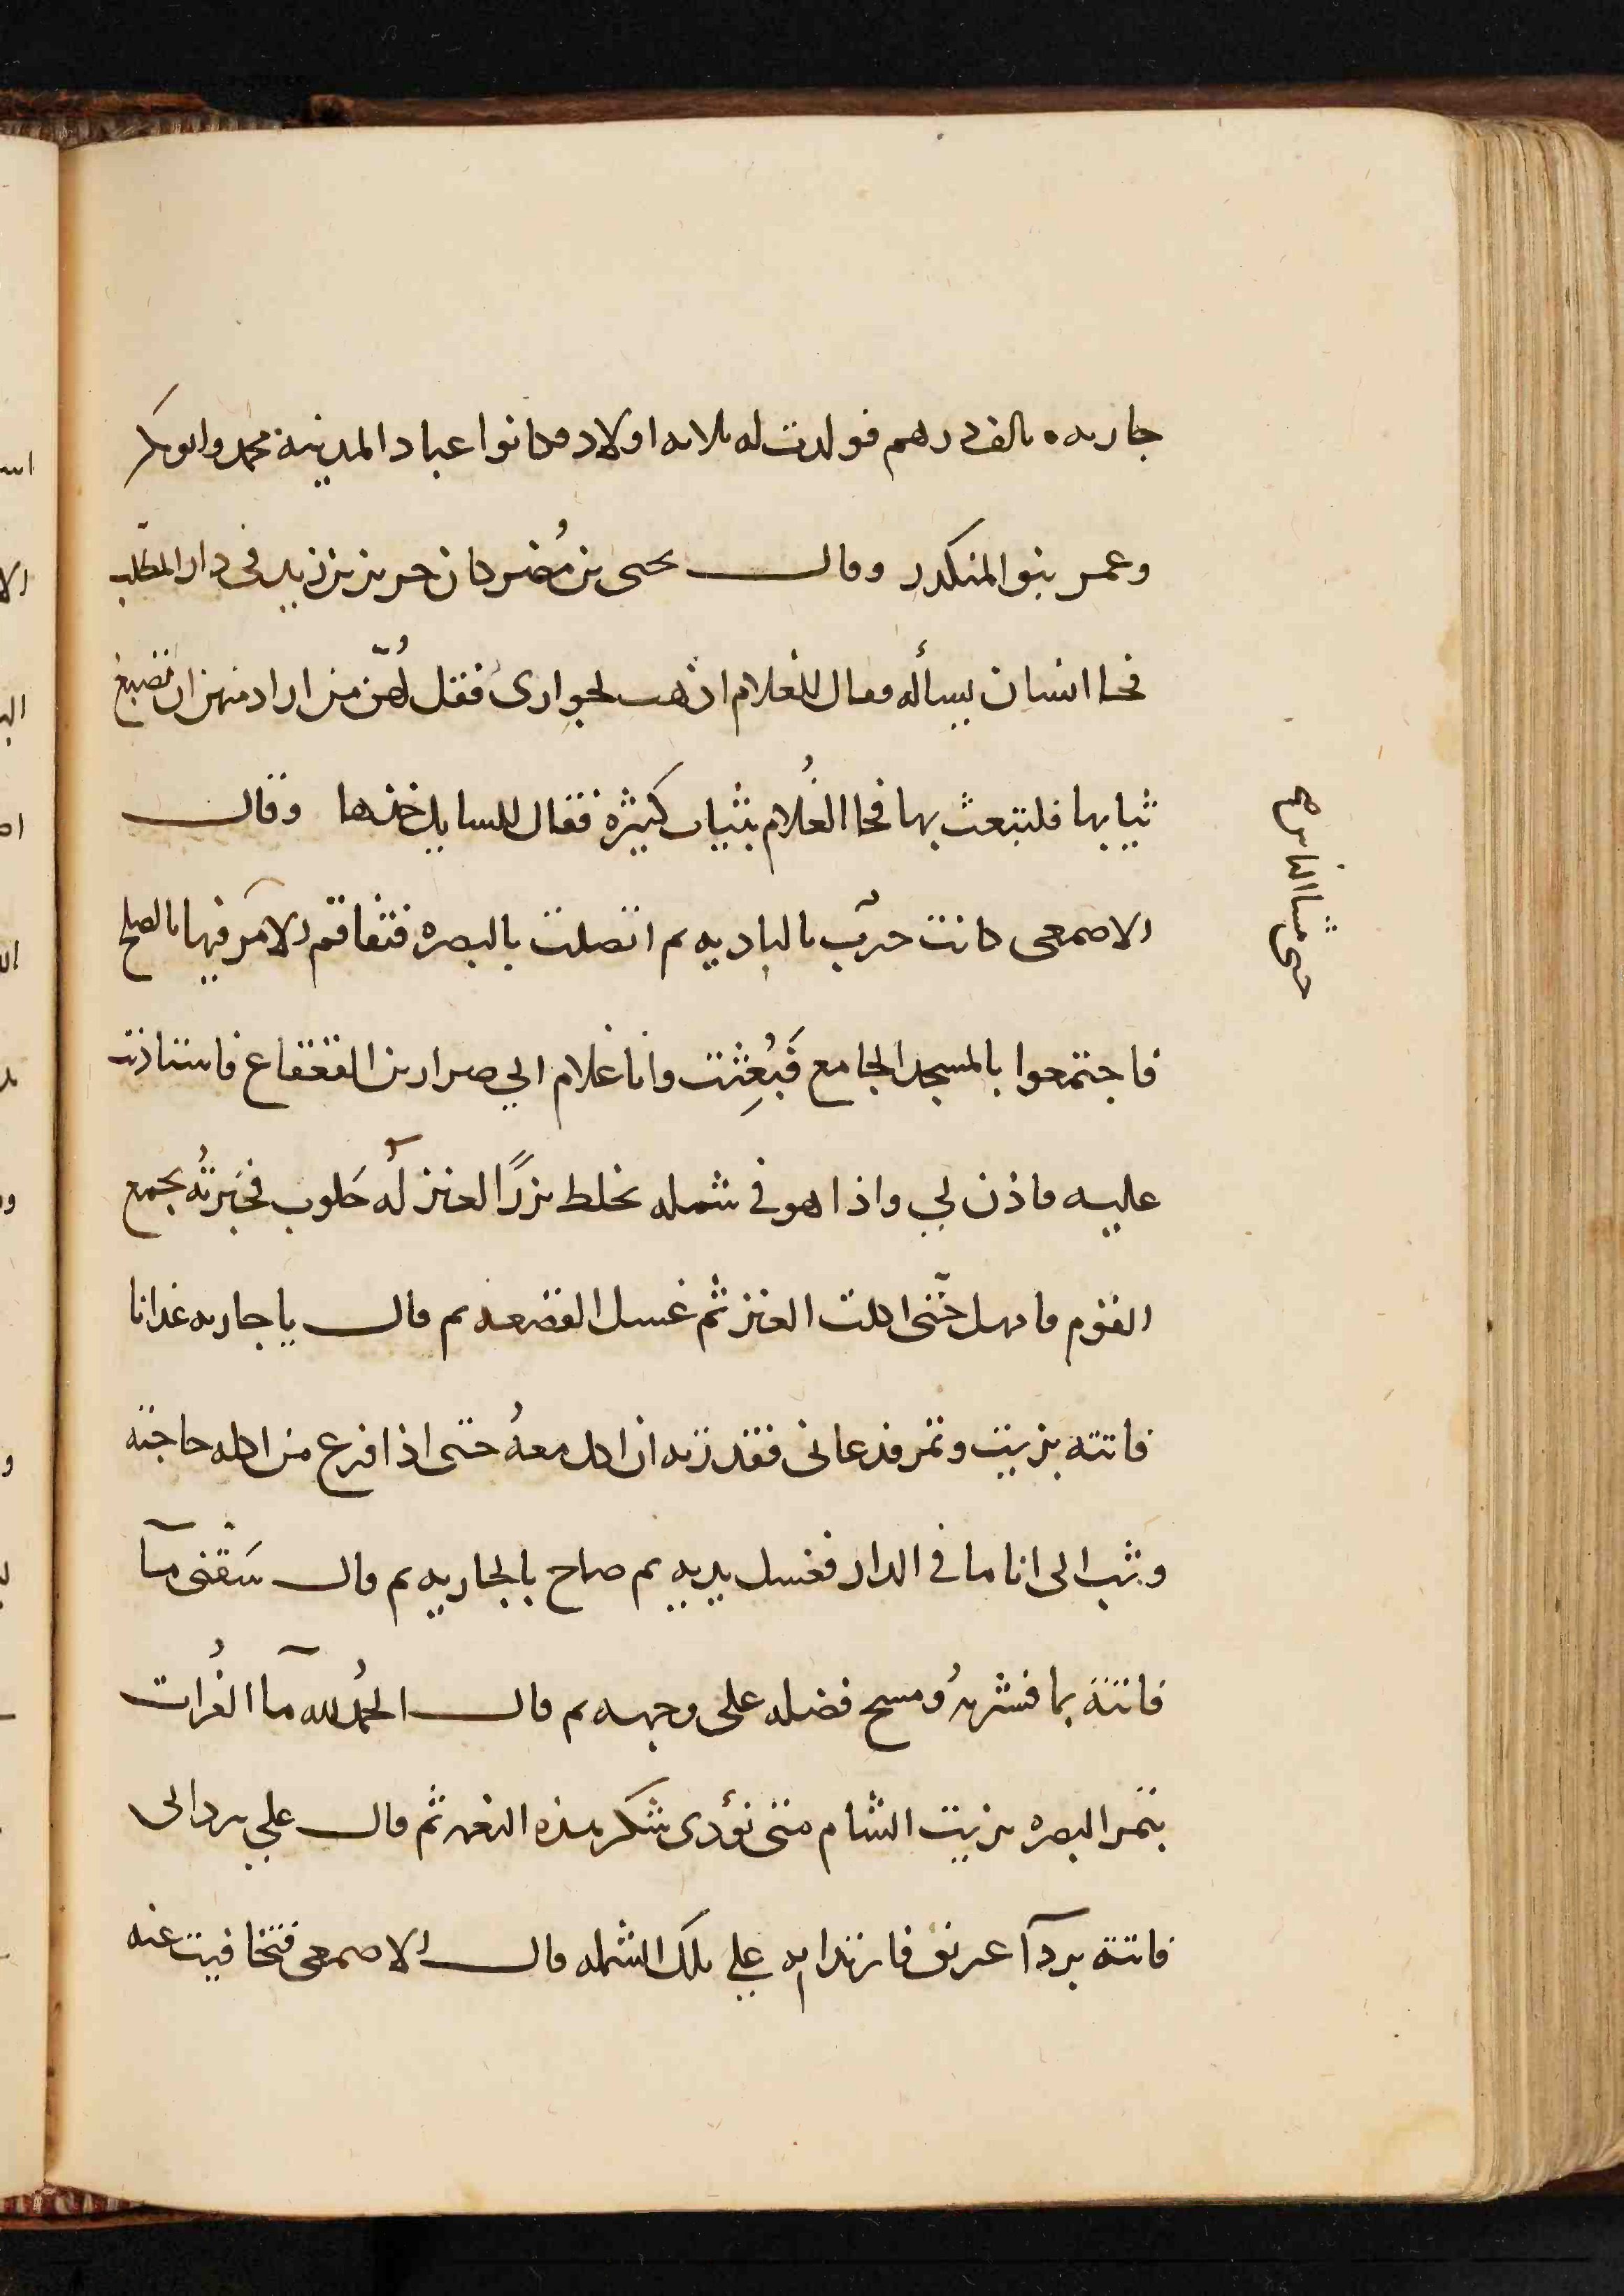 جاريه بالف درهم فولدت له ثلاثه اولاد فكانوا عباد المدينة محمد وابو بكر
وعمر بنو المنكدر وقال يحيى بن مُضر كان حريز بن زيد في دار المطّلب
فجا انسان يسأله فقال للغلام اذهب لجوارىَ فقل لهُنّ من اراد منهن ان تصبغ
ثيابها فلتبعث بها فجا الغُلام بثياب كثيرة فقال للسايل خذها وقال
الاصمعى كانت حرب بالباديه ثم اتصلت بالبصره فتفاقم الامر فيها بالصلح
فاجتمعوا بالمسجد الجامع فَبُعِثت وانا غلام الي ضرار بن القعقاع فاستاذنت
عليه فاذن لي واذا هو في شمله يخلط بزرًا لعنز لهُ حَلوب فخبّرتُه بجمع
القوم فامهل حتّى اكلت العنز ثم غسل القصعه ثم قال يا جاريه غدانا
فاتته بزيت وتمر فدعانى فقذرته ان اكل معهُ حتى اذا فرغ من اكله حاجته
وثب الى انا ما في الدار فغسل يديه ثم صاح بالجاريه ثم قال سَقنى مآ
فاتته بما فشربهُ ومسح فضله على وجهه ثم قال الحمُد لله مآ الفُرات
بتمر البصره بزيت الشام متى نؤدى شكر هذه النعم ثم قال علي بردائى
فاتته بردآ عربى فارتدا به علي تلك الشمله قال الاصمعى فتجافيت عنه
حى مسا الناس مح